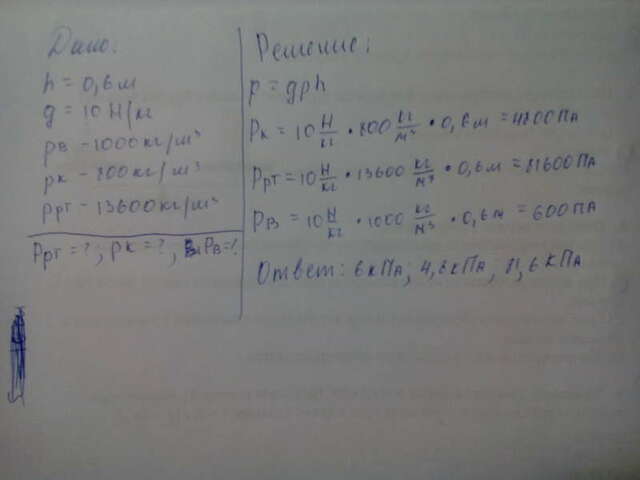 Дано:
h = 0,6 м
g = 10 Н/кг
ρв = 1000 кг/м³
ρк = 800 кг/м³
ρрт = 13600 кг/м³
Pрт = ?; pк = ?, Pв = ?
Решение:
p = gρh
Pк = 10 Н/кг · 800 кг/м³ · 0,6 м = 4800 Па
Pрт = 10 Н/кг · 13600 кг/м³ · 0,6 м = 81600 Па
Pв = 10 Н/кг · 1000 кг/м³ · 0,6 м = 600 Па
Ответ: 6 кПа; 4,8 кПа, 81,6 кПа